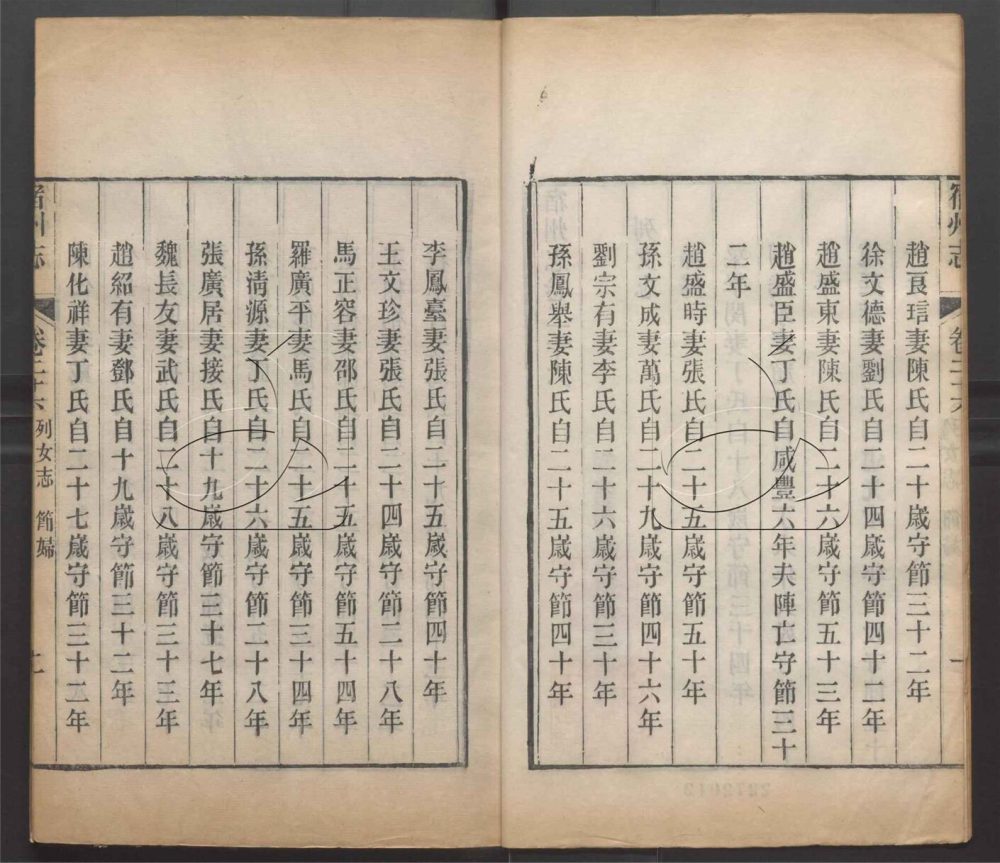 宿州志 卷三十六
趙良琂妻陳氏自二十歲守節三十二年
徐文德妻劉氏自二十四歲守節四十三年
趙盛東妻陳氏自二十六歲守節五十三年
趙盛臣妻丁氏自咸豐六年夫陣亡守節三十
二年
趙盛時妻張氏自二十五歲守節四十年
孫文成妻萬氏自二十九歲守節四十六年
劉宗有妻李氏自二十六歲守節三十年
孫鳳舉妻陳氏自二十五歲守節四十年
李鳳臺妻張氏自二十五歲守節四十年
王文珍妻張氏自二十四歲守節二十八年
馬正容妻邵氏自二十五歲守節五十四年
羅廣平妻馬氏自二十五歲守節三十四年
孫清源妻丁氏自二十六歲守節二十八年
張廣居妻接氏自十九歲守節三十七年
魏長友妻武氏自二十八歲守節三十三年
趙紹有妻鄧氏自十九歲守節三十二年
陳化祥妻丁氏自二十七歲守節三十三年
宿州志 卷三十六 列女志 節婦